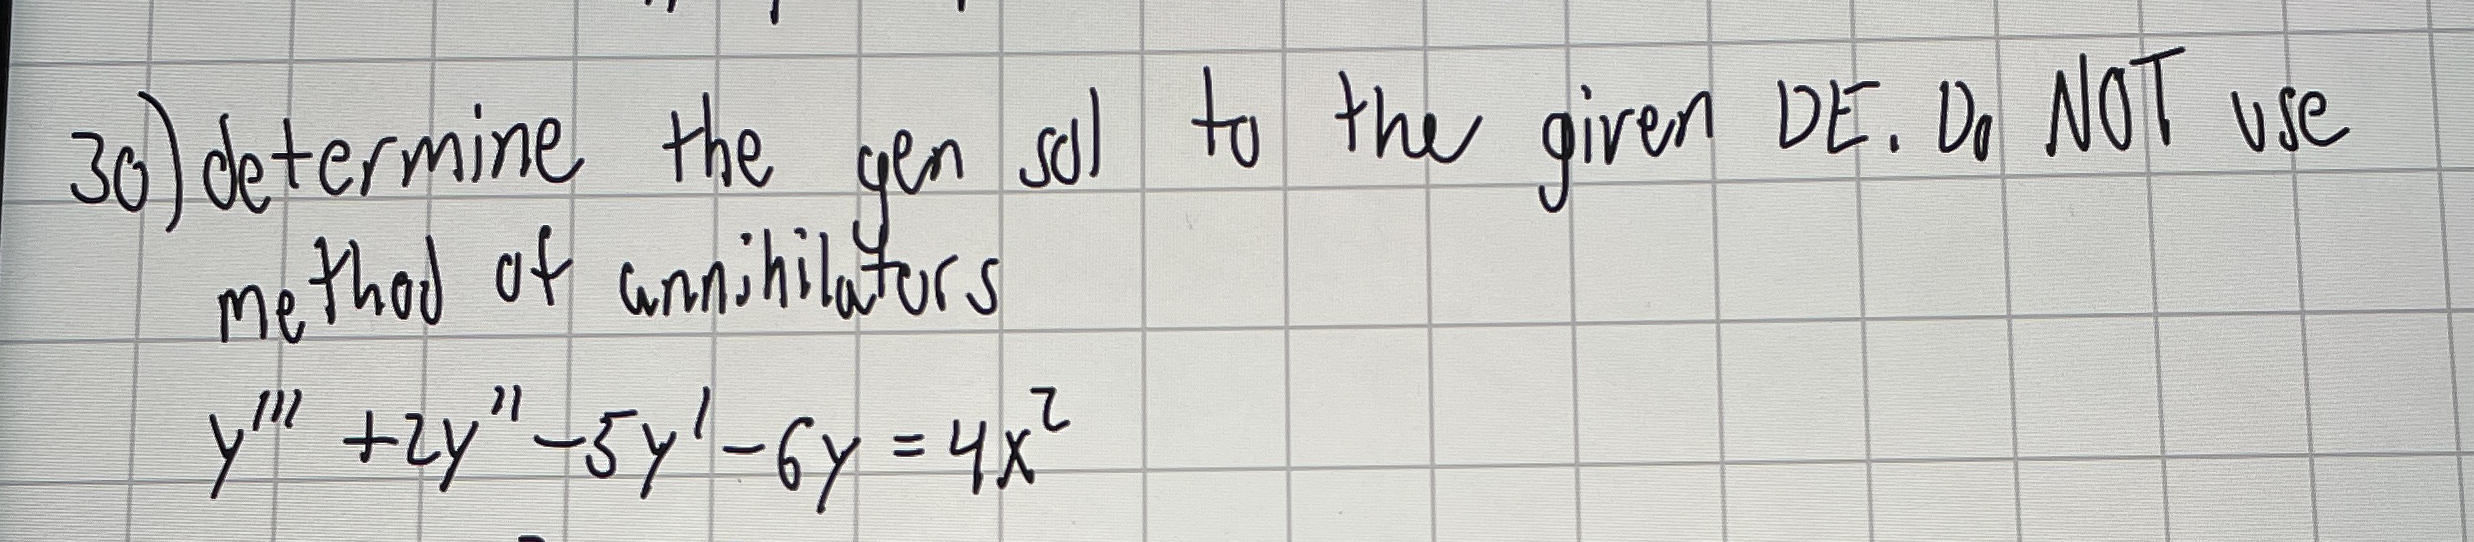 30) determine the gen sol to the given DE. Do NOT use
method of annihilators
y''' +2y'' -5y' -6y = 4x²